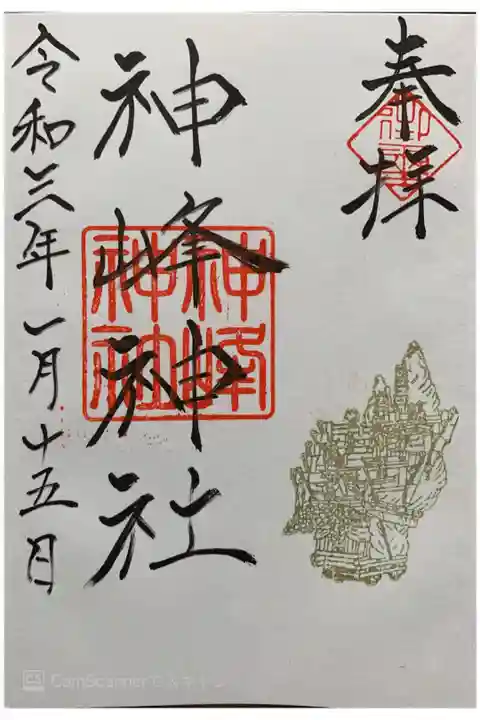 奉拝
神峰神社
神峰神社
令和三年一月十五日
CamScanner でスキャン